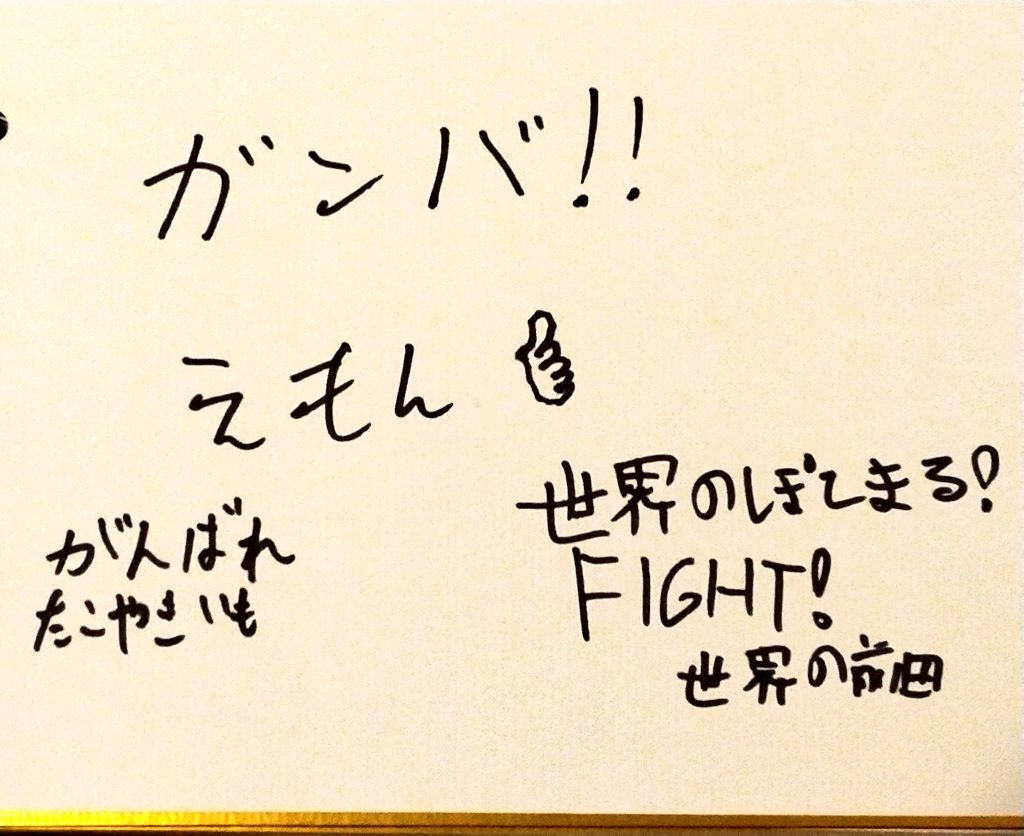 ガンバ!!
えもん
がんばれ
たこやきいも
世界のぽてまる!
FIGHT!
世界の前田